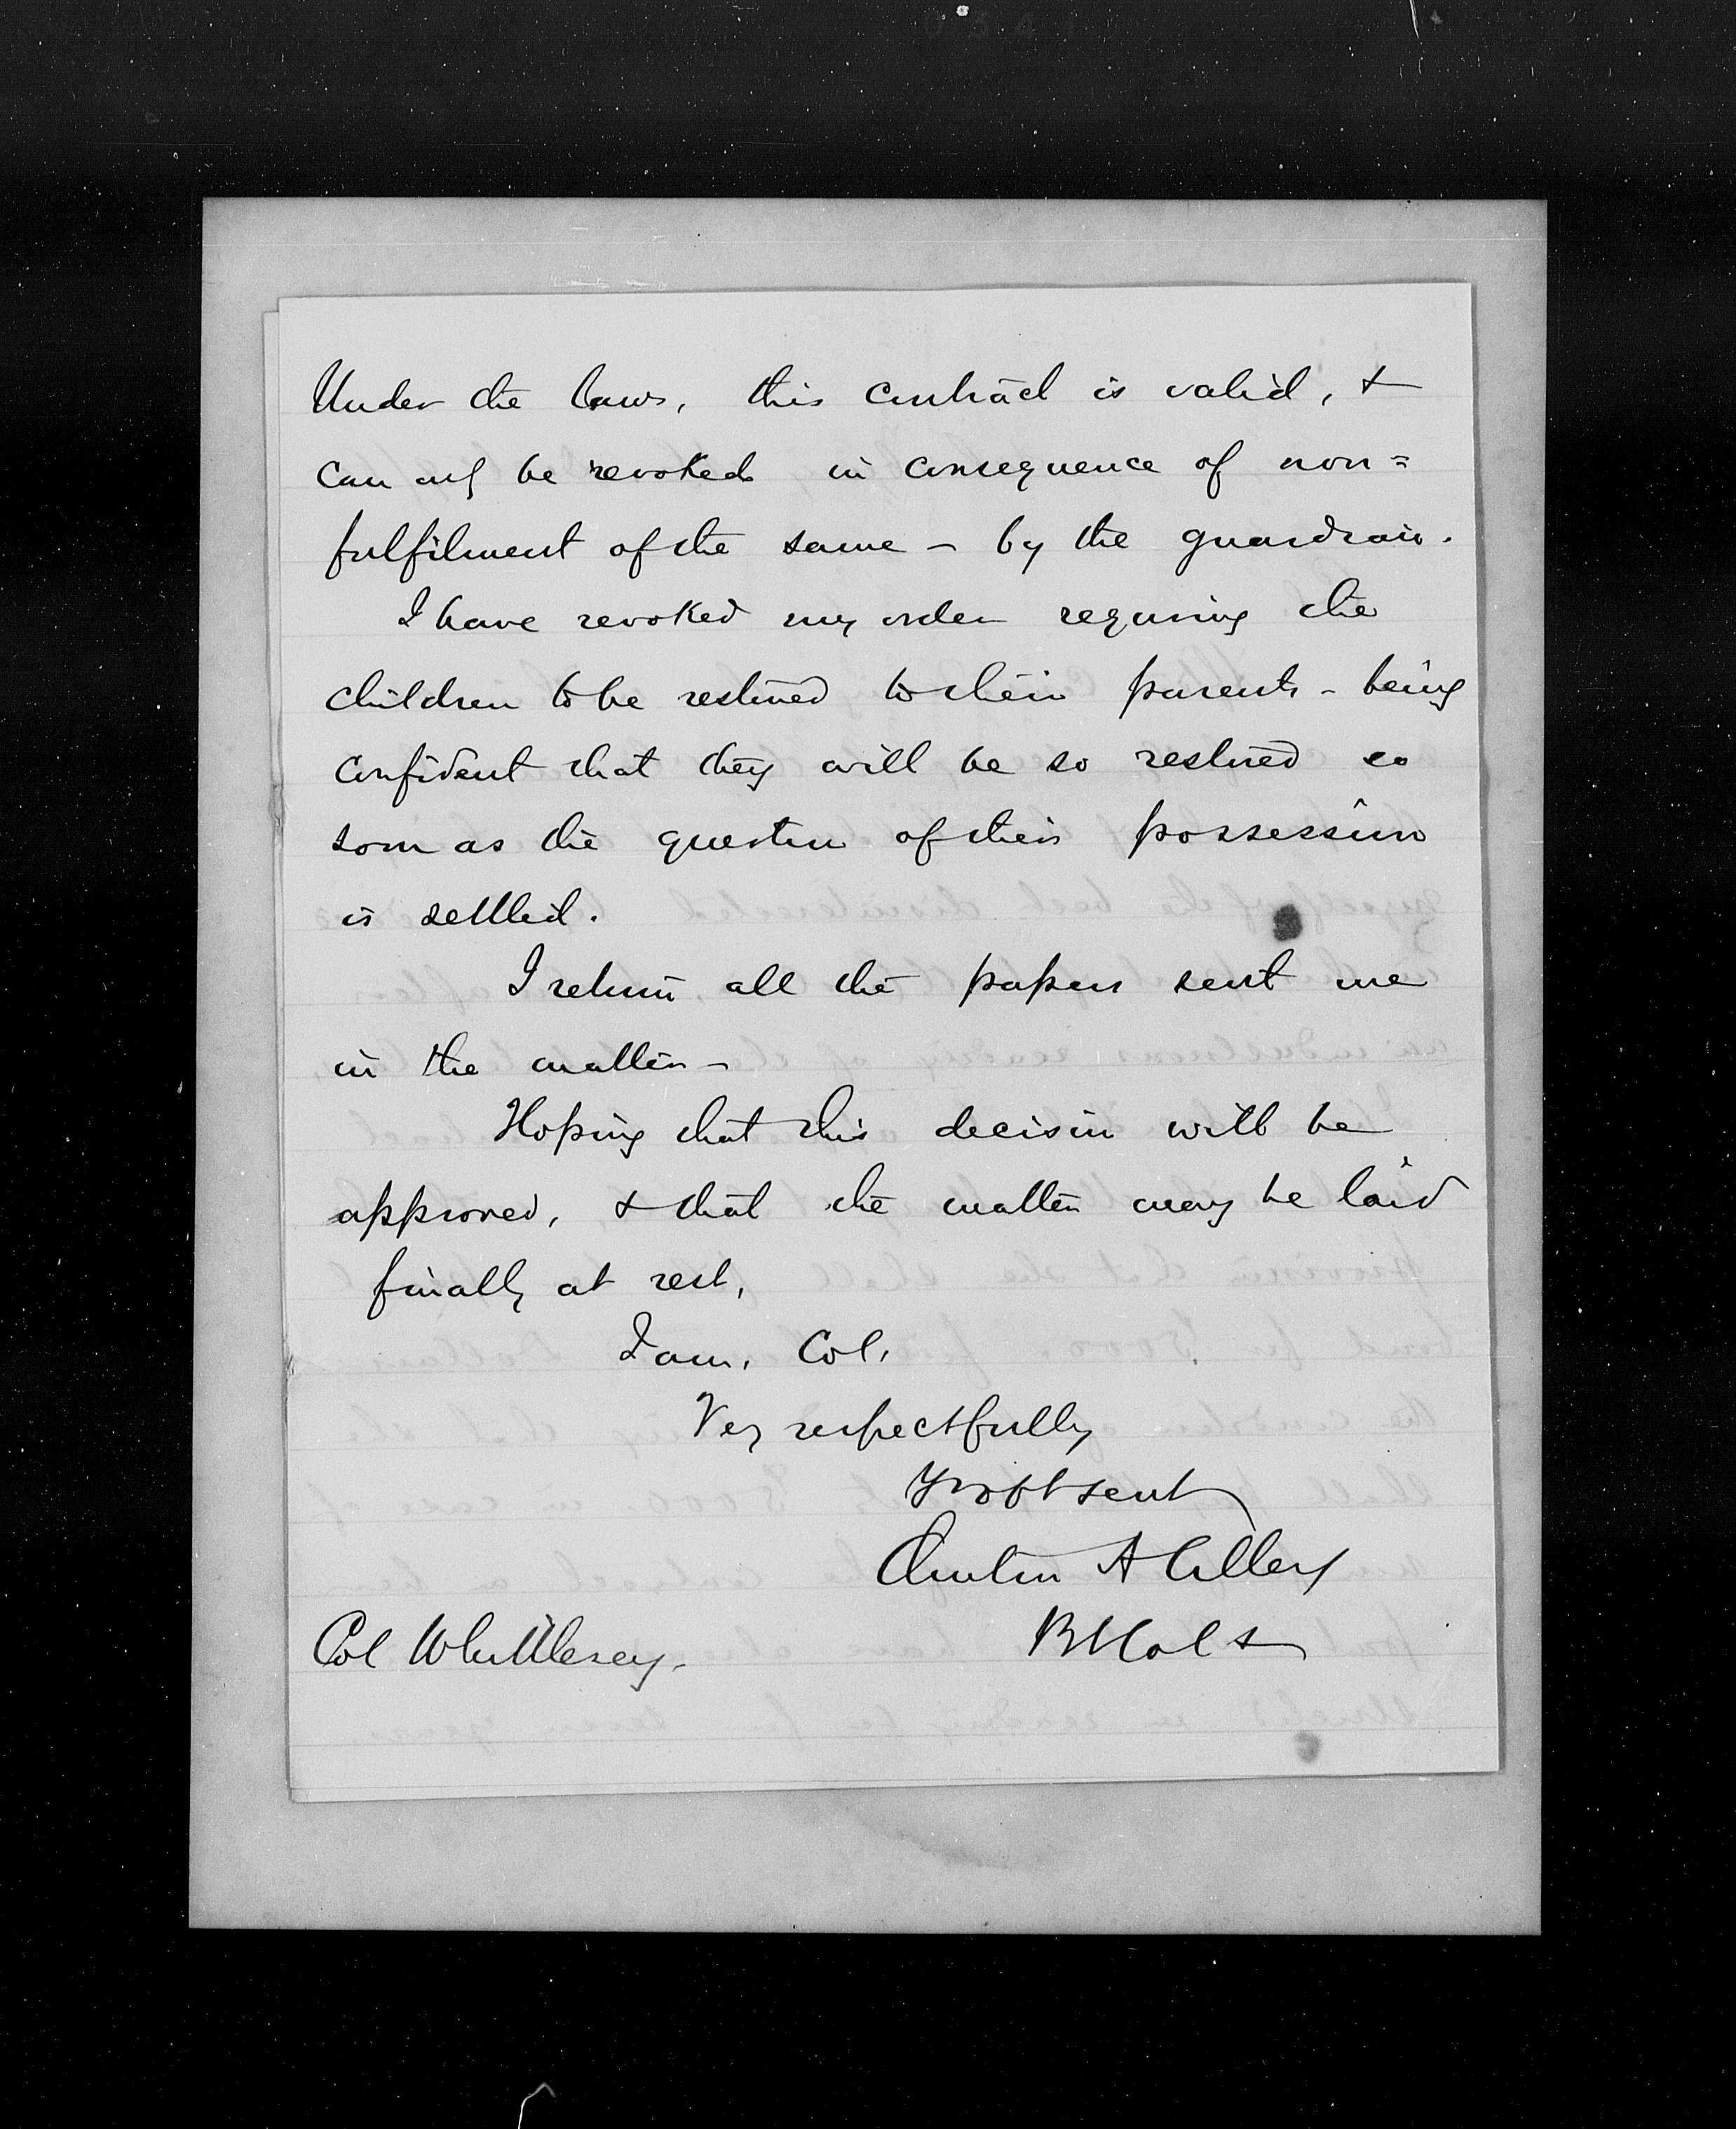 Under the laws, this contract is valid, &
can only be revoked in consequence of non=
fulfilment of the same – by the guardian.
I have revoked my order requiring the
children to be restored to their parents – being
confident that they will be so restored so
soon as the question of their possession
is settled.
I return all the papers sent me
in the matter –
Hoping that this decision will be
approved, & that the matter may be laid
finally at rest,
I am, Col,
Very respectfully
Yr obt servt
Clinton A Cilley
Col Whittlesey.